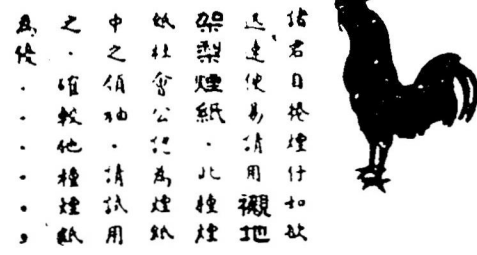 諸君自捲煙仔如欲
迅速便易請用襯地
架梨煙紙・此種煙
紙社會公認為煙紙
中之領袖・請試用
之・確較他種煙紙
為優・・・・・，